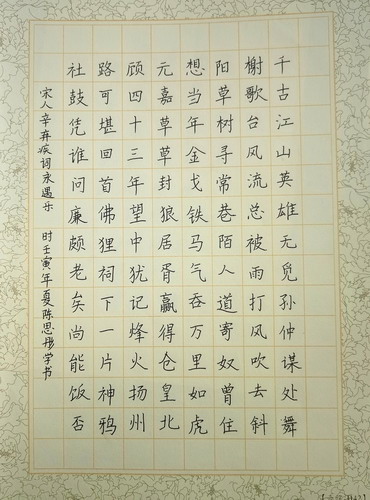 千古江山英雄无觅孙仲谋处舞
榭歌台风流总被雨打风吹去斜
阳草树寻常巷陌人道寄奴曾住
想当年金戈铁马气吞万里如虎
元嘉草草封狼居胥赢得仓皇北
顾四十三年望中犹记烽火扬州
路可堪回首佛狸祠下一片神鸦
社鼓凭谁问廉颇老矣尚能饭否
宋人辛弃疾词永遇乐 时壬寅年夏陈思彤学书